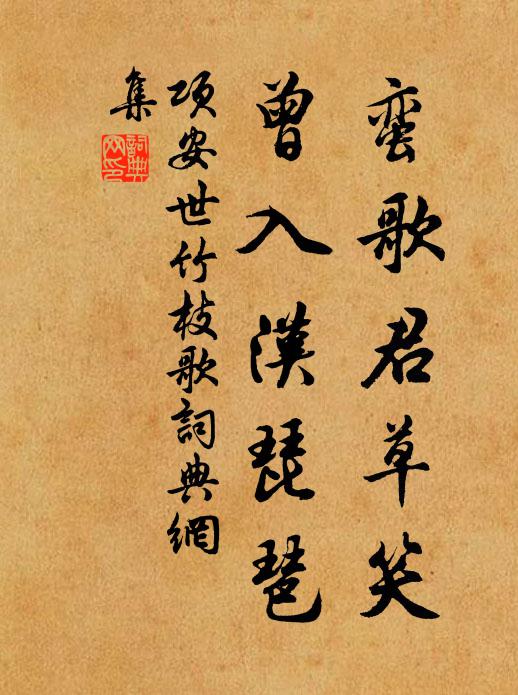 蛮歌君草笑
曾入漢琵琶
项安世竹枝歌詞典網
集
詞典網印